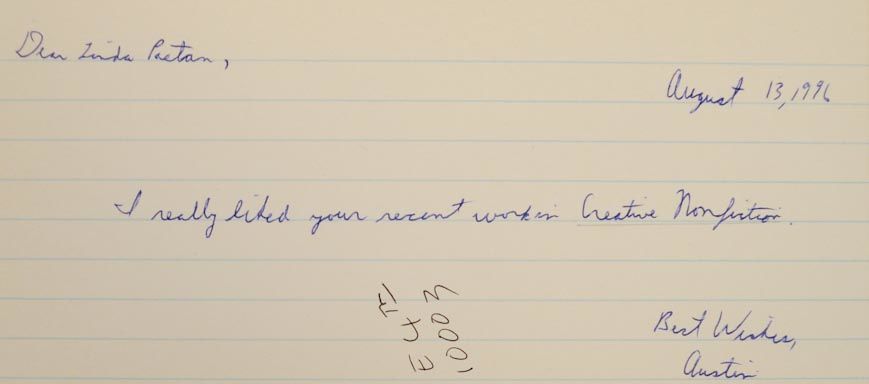 Dear Linda Pastan,
August 13, 1996
I really liked your recent work in Creative Nonfiction.
E 4
10003
Best Wishes,
Austin